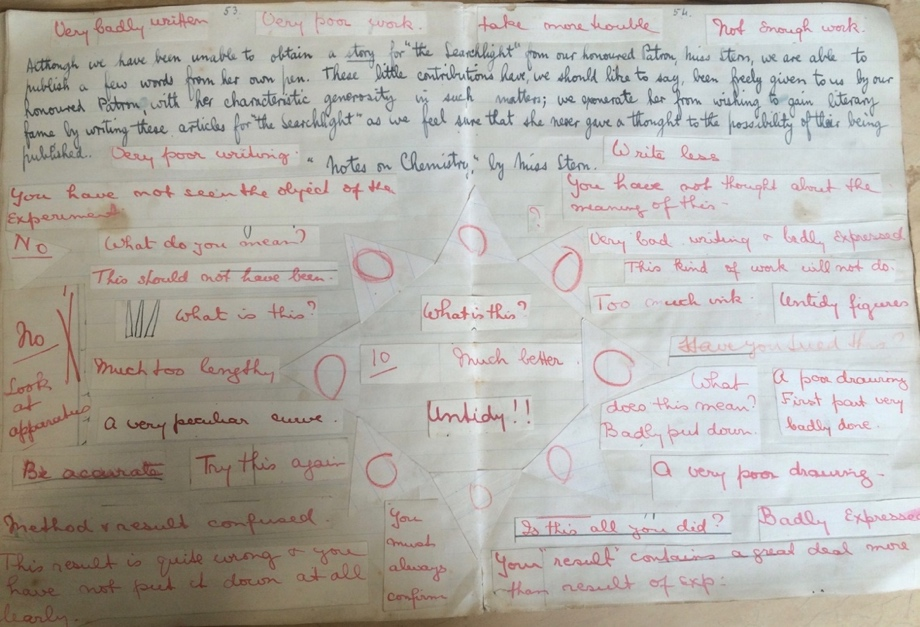 53.
54.
Very badly written
Very poor work.
take more trouble
Not enough work.
Although we have been unable to obtain a story for "the Searchlight" from our honoured Patron, Miss Stern, we are able to
publish a few words from her own pen. These little contributions have, we should like to say, been freely given to us by our
honoured Patron, with her characteristic generosity in such matters; we exonerate her from wishing to gain literary
fame by writing these articles for "the Searchlight" as we feel sure that she never gave a thought to the possibility of their being
published.
Very poor writing.
"Notes on Chemistry," by Miss Stern.
Write less
You have not seen the object of the
Experiment
You have not thought about the
meaning of this -
?
No
What do you mean?
Very bad writing & badly expressed
This should not have been.
This kind of work will not do.
What is this?
What is this?
Too much ink.
Untidy figures
No
Look
at
apparatus
Have you tried this?
Much too lengthy
10
Much better.
What
does this mean?
Badly put down.
A poor drawing
First part very
badly done.
A very peculiar curve.
Untidy!!
Be accurate
Try this again
A very poor drawing -
Method & result confused.
You
must
always
confirm
Is this all you did?
Badly Expressed
This result is quite wrong & you
have not put it down at all
clearly.
Your "result" contains a great deal more
than result of exp: